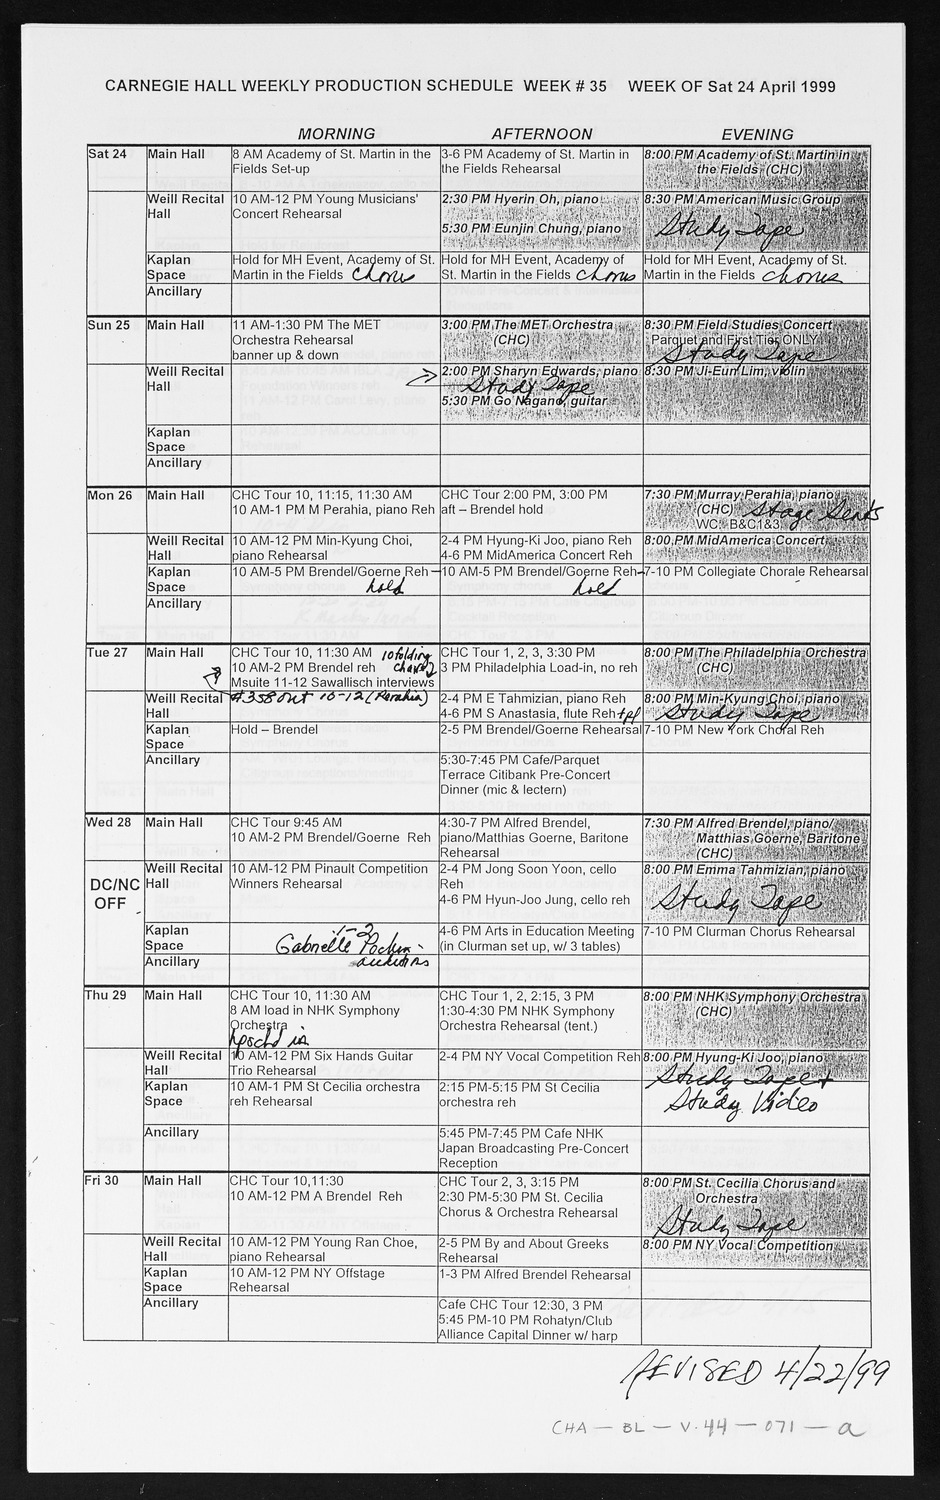 CARNEGIE HALL WEEKLY PRODUCTION SCHEDULE WEEK # 35 WEEK OF Sat 24 April 1999
MORNING AFTERNOON EVENING
Sat 24 Main Hall
8 AM Academy of St. Martin in the
Fields Set-up
3-6 PM Academy of St. Martin in
the Fields Rehearsal
8:00 PM Academy of St. Martin in
the Fields (CHC)
Weill Recital
Hall
10 AM-12 PM Young Musicians'
Concert Rehearsal
2:30 PM Hyerin Oh, piano
5:30 PM Eunjin Chung, piano
8:30 PM American Music Group
Study Tape
Kaplan
Space
Hold for MH Event, Academy of St.
Martin in the Fields chorus
Hold for MH Event, Academy of
St. Martin in the Fields chorus
Hold for MH Event, Academy of St.
Martin in the Fields chorus
Ancillary
Sun 25 Main Hall
11 AM-1:30 PM The MET
Orchestra Rehearsal
banner up & down
3:00 PM The MET Orchestra
(CHC)
8:30 PM Field Studies Concert
Parquet and First Tier ONLY
Study Tape
Weill Recital
Hall
2:00 PM Sharyn Edwards, piano
Study Tape
5:30 PM Go Nagano, guitar
8:30 PM Ji-Eun Lim, violin
Kaplan
Space
Ancillary
Mon 26 Main Hall
CHC Tour 10, 11:15, 11:30 AM
10 AM-1 PM M Perahia, piano Reh
CHC Tour 2:00 PM, 3:00 PM
aft – Brendel hold
7:30 PM Murray Perahia, piano
(CHC) Stage Seats
WC: B&C1&3
Weill Recital
Hall
10 AM-12 PM Min-Kyung Choi,
piano Rehearsal
2-4 PM Hyung-Ki Joo, piano Reh
4-6 PM MidAmerica Concert Reh
8:00 PM MidAmerica Concert
Kaplan
Space
10 AM-5 PM Brendel/Goerne Reh
hold
10 AM-5 PM Brendel/Goerne Reh
hold
7-10 PM Collegiate Chorale Rehearsal
Ancillary
Tue 27 Main Hall
CHC Tour 10, 11:30 AM 10 folding
10 AM-2 PM Brendel reh chairs
Msuite 11-12 Sawallisch interviews
#358 out 10-12 (Perahia)
CHC Tour 1, 2, 3, 3:30 PM
3 PM Philadelphia Load-in, no reh
8:00 PM The Philadelphia Orchestra
(CHC)
Weill Recital
Hall
2-4 PM E Tahmizian, piano Reh
4-6 PM S Anastasia, flute Reh + pf
8:00 PM Min-Kyung Choi, piano
Study Tape
Kaplan
Space
Hold – Brendel
2-5 PM Brendel/Goerne Rehearsal
7-10 PM New York Choral Reh
Ancillary
5:30-7:45 PM Cafe/Parquet
Terrace Citibank Pre-Concert
Dinner (mic & lectern)
Wed 28 Main Hall
CHC Tour 9:45 AM
10 AM-2 PM Brendel/Goerne Reh
4:30-7 PM Alfred Brendel,
piano/Matthias Goerne, Baritone
Rehearsal
7:30 PM Alfred Brendel, piano/
Matthias Goerne, Baritone
(CHC)
DC/NC
OFF
Weill Recital
Hall
10 AM-12 PM Pinault Competition
Winners Rehearsal
2-4 PM Jong Soon Yoon, cello
Reh
4-6 PM Hyun-Joo Jung, cello reh
8:00 PM Emma Tahmizian, piano
Study Tape
Kaplan
Space
1-2
Gabrielle
auditions
4-6 PM Arts in Education Meeting
(in Clurman set up, w/ 3 tables)
7-10 PM Clurman Chorus Rehearsal
Ancillary
Thu 29 Main Hall
CHC Tour 10, 11:30 AM
8 AM load in NHK Symphony
Orchestra
hpschd in
CHC Tour 1, 2, 2:15, 3 PM
1:30-4:30 PM NHK Symphony
Orchestra Rehearsal (tent.)
8:00 PM NHK Symphony Orchestra
(CHC)
Weill Recital
Hall
10 AM-12 PM Six Hands Guitar
Trio Rehearsal
2-4 PM NY Vocal Competition Reh
8:00 PM Hyung-Ki Joo, piano
Study Tape +
Study Video
Kaplan
Space
10 AM-1 PM St Cecilia orchestra
reh Rehearsal
2:15 PM-5:15 PM St Cecilia
orchestra reh
Ancillary
5:45 PM-7:45 PM Cafe NHK
Japan Broadcasting Pre-Concert
Reception
Fri 30 Main Hall
CHC Tour 10,11:30
10 AM-12 PM A Brendel Reh
CHC Tour 2, 3, 3:15 PM
2:30 PM-5:30 PM St. Cecilia
Chorus & Orchestra Rehearsal
8:00 PM St. Cecilia Chorus and
Orchestra
Study Tape
Weill Recital
Hall
10 AM-12 PM Young Ran Choe,
piano Rehearsal
2-5 PM By and About Greeks
Rehearsal
8:00 PM NY Vocal Competition
Kaplan
Space
10 AM-12 PM NY Offstage
Rehearsal
1-3 PM Alfred Brendel Rehearsal
Ancillary
Cafe CHC Tour 12:30, 3 PM
5:45 PM-10 PM Rohatyn/Club
Alliance Capital Dinner w/ harp
REVISED 4/22/99
CHA – BL – V.44 – 071 – a